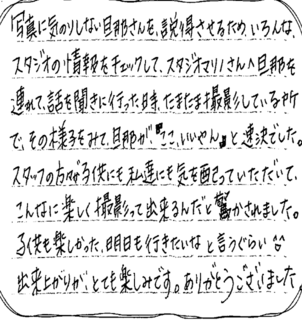 写真に気のりしない旦那さんを、説得させるため、いろんな、
スタジオの情報をチェックして、スタジオマリノさんへ旦那も
連れて、話を聞きに行った時、たまたま撮影している所
で、その様子をみて、旦那が、『ここ、いいやん』と速決でした。
スタッフの方々が子供にも私達にも気を配っていただいて、
こんなに楽しく撮影って出来るんだと驚かされました。
子供も楽しかった、明日も行きたいなと言うぐらい
出来上がりが、とても楽しみです。ありがとうございました